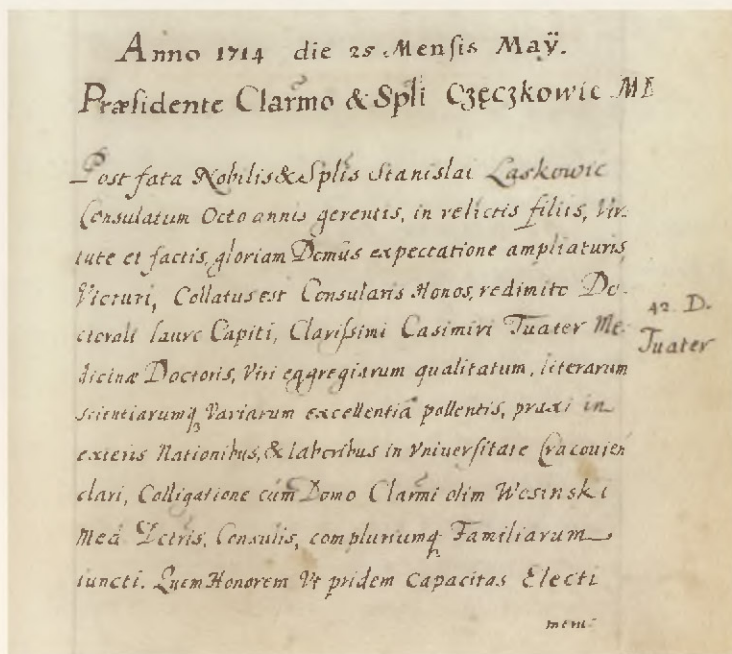 Anno 1714 die 25 Mensis Maÿ.
Præsidente Clarmo & Spli Częczkowic
Post fata Nobilis & Splis Stanislai Laskowic
Consulatum Octo annis gerentis, in relictis filiis, Vir-
tute et factis, gloriam Domûs expectatione ampliaturis,
Victuri, Collatus est Consularis Honos, redimito Do-
ctorali lauro Capiti, Clarissimi Casimiri Tuater Me-
dicinæ Doctoris, Viri eggregiarum qualitatum, literarum
scientiarumq Variarum excellentiâ pollentis, praxi in
exteris Nationibus, & laboribus in Vniversitate Cracovien
clari, Colligatione cùm Domo Clarmi olim Wosinski
Med Dctris, Consulis, compluriumq Familiarum
iuncti. Quem Honorem Vt pridem Capacitas Electi
42. D.
Tuater